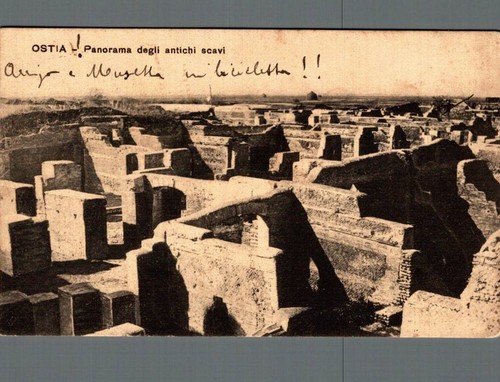 OSTIA - Panorama degli antichi scavi
e Musetta in bicicletta !!